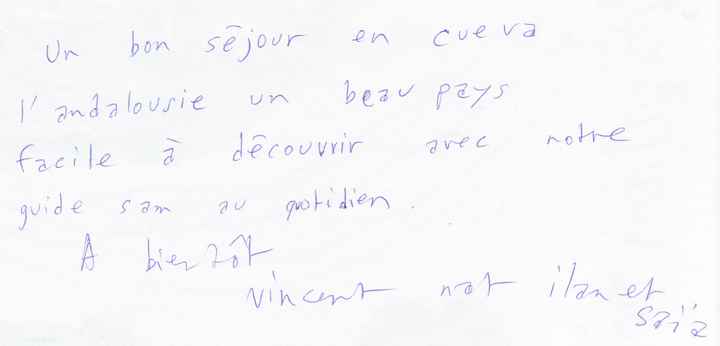 Un bon séjour en cueva
l'andalousie un beau pays
facile à découvrir avec notre
guide sam au quotidien.
A bientôt
vincent nat ilan et
Saïa